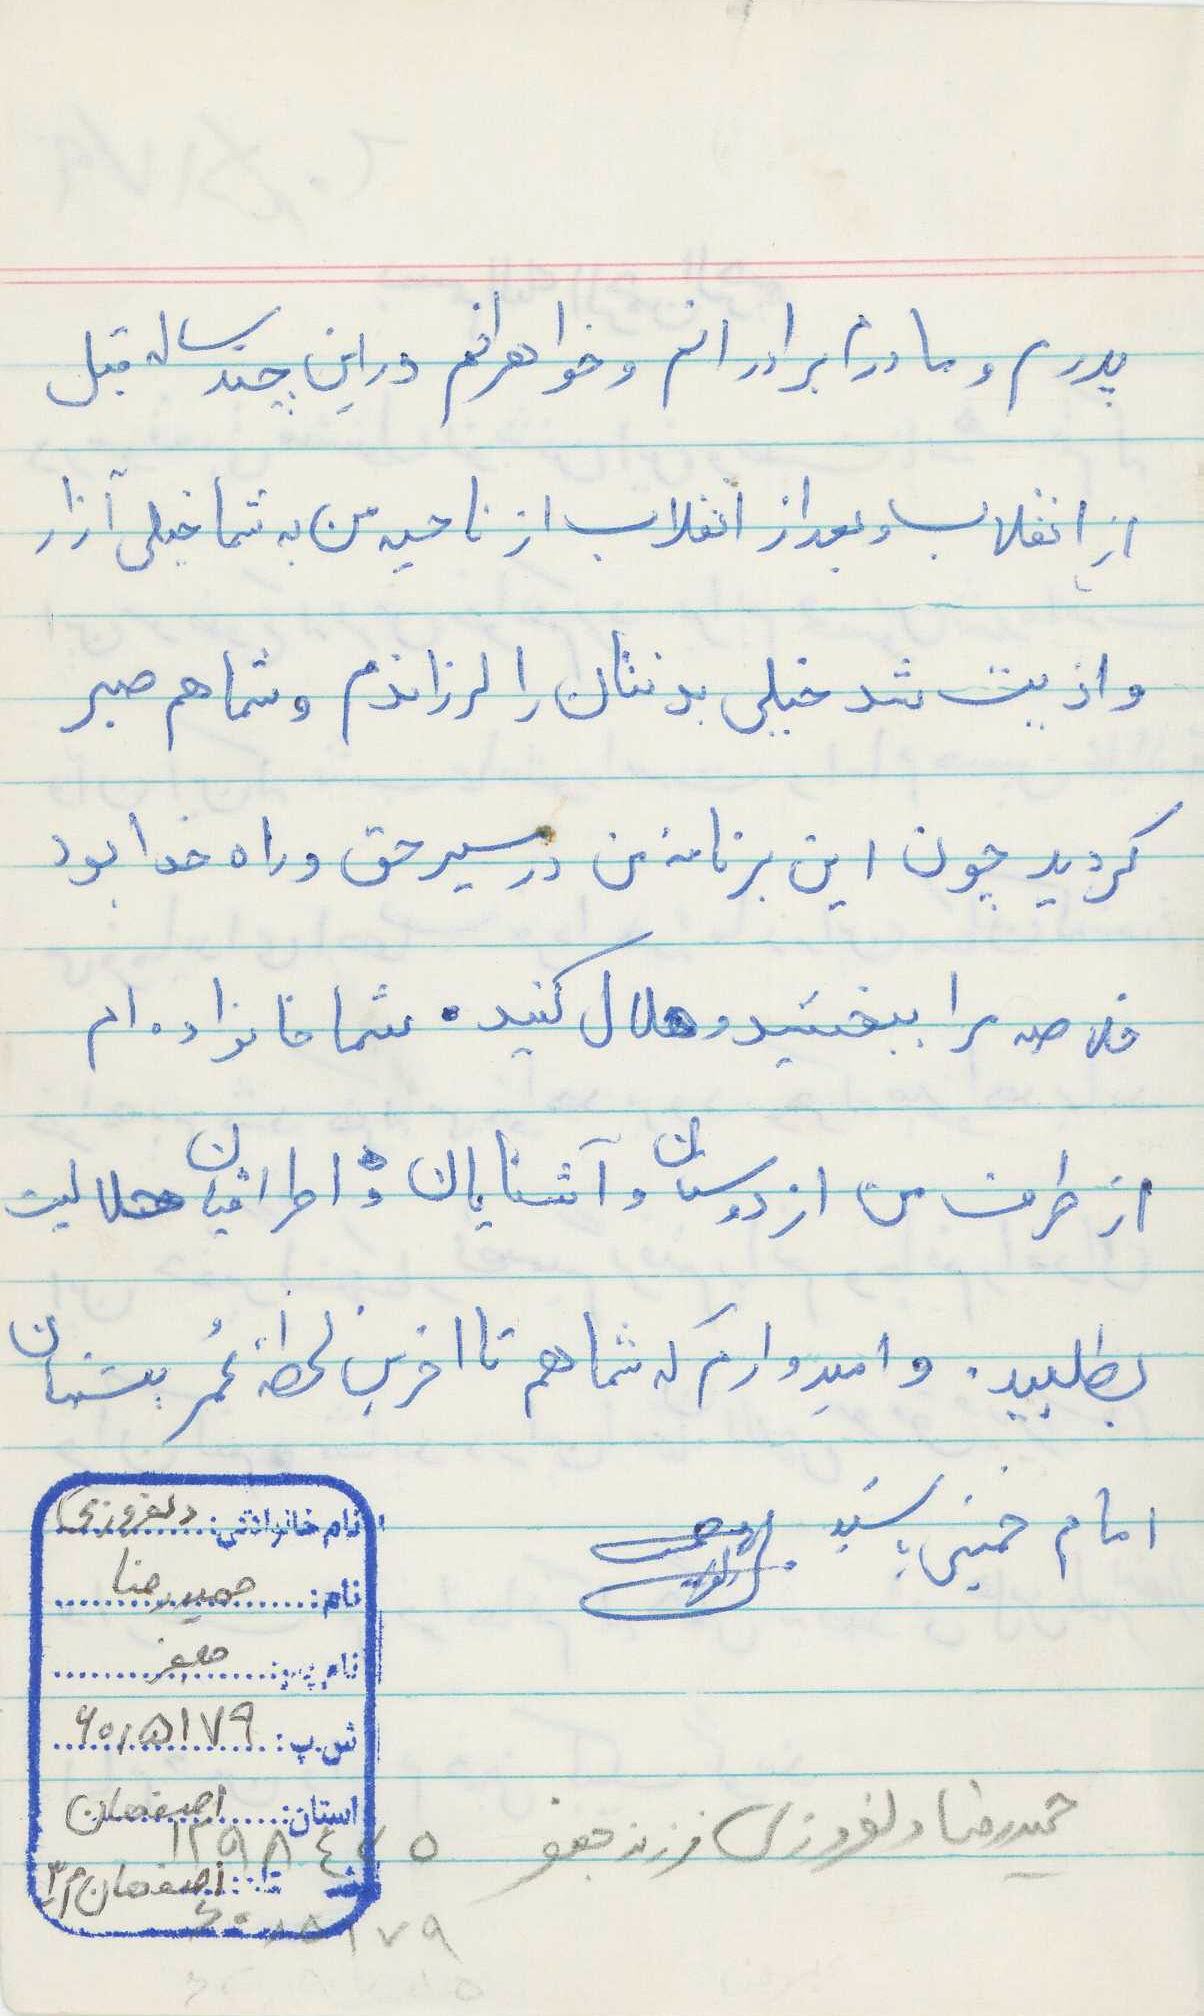 پدرم و مادرم برادرانم و خواهرانم در این چند ساله قبل
از انقلاب و بعد از انقلاب از ناحیه من به شما خیلی آزار
و اذیت شد خیلی بدنتان را لرزاندم و شما هم صبر
کردید چون این برنامه من در مسیر حق و راه خدا بود
خلاصه مرا ببخشید و هلال کنید. شما خانواده ام
از طرف من از دوستان و آشنایان و اطرافیان هلالیت
بطلبید. و امیدوارم که شما هم تا اخرین لحظه عمر پشتیبان
امام خمینی باشید
نام خانوادگی: دلفروزی
نام: حمیدرضا
نام پدر: جعفر
ش.پ: ۶۰۱۵۱۷۹
استان: اصفهان
اصفهان
حمیدرضا دلفروزی فرزند جعفر